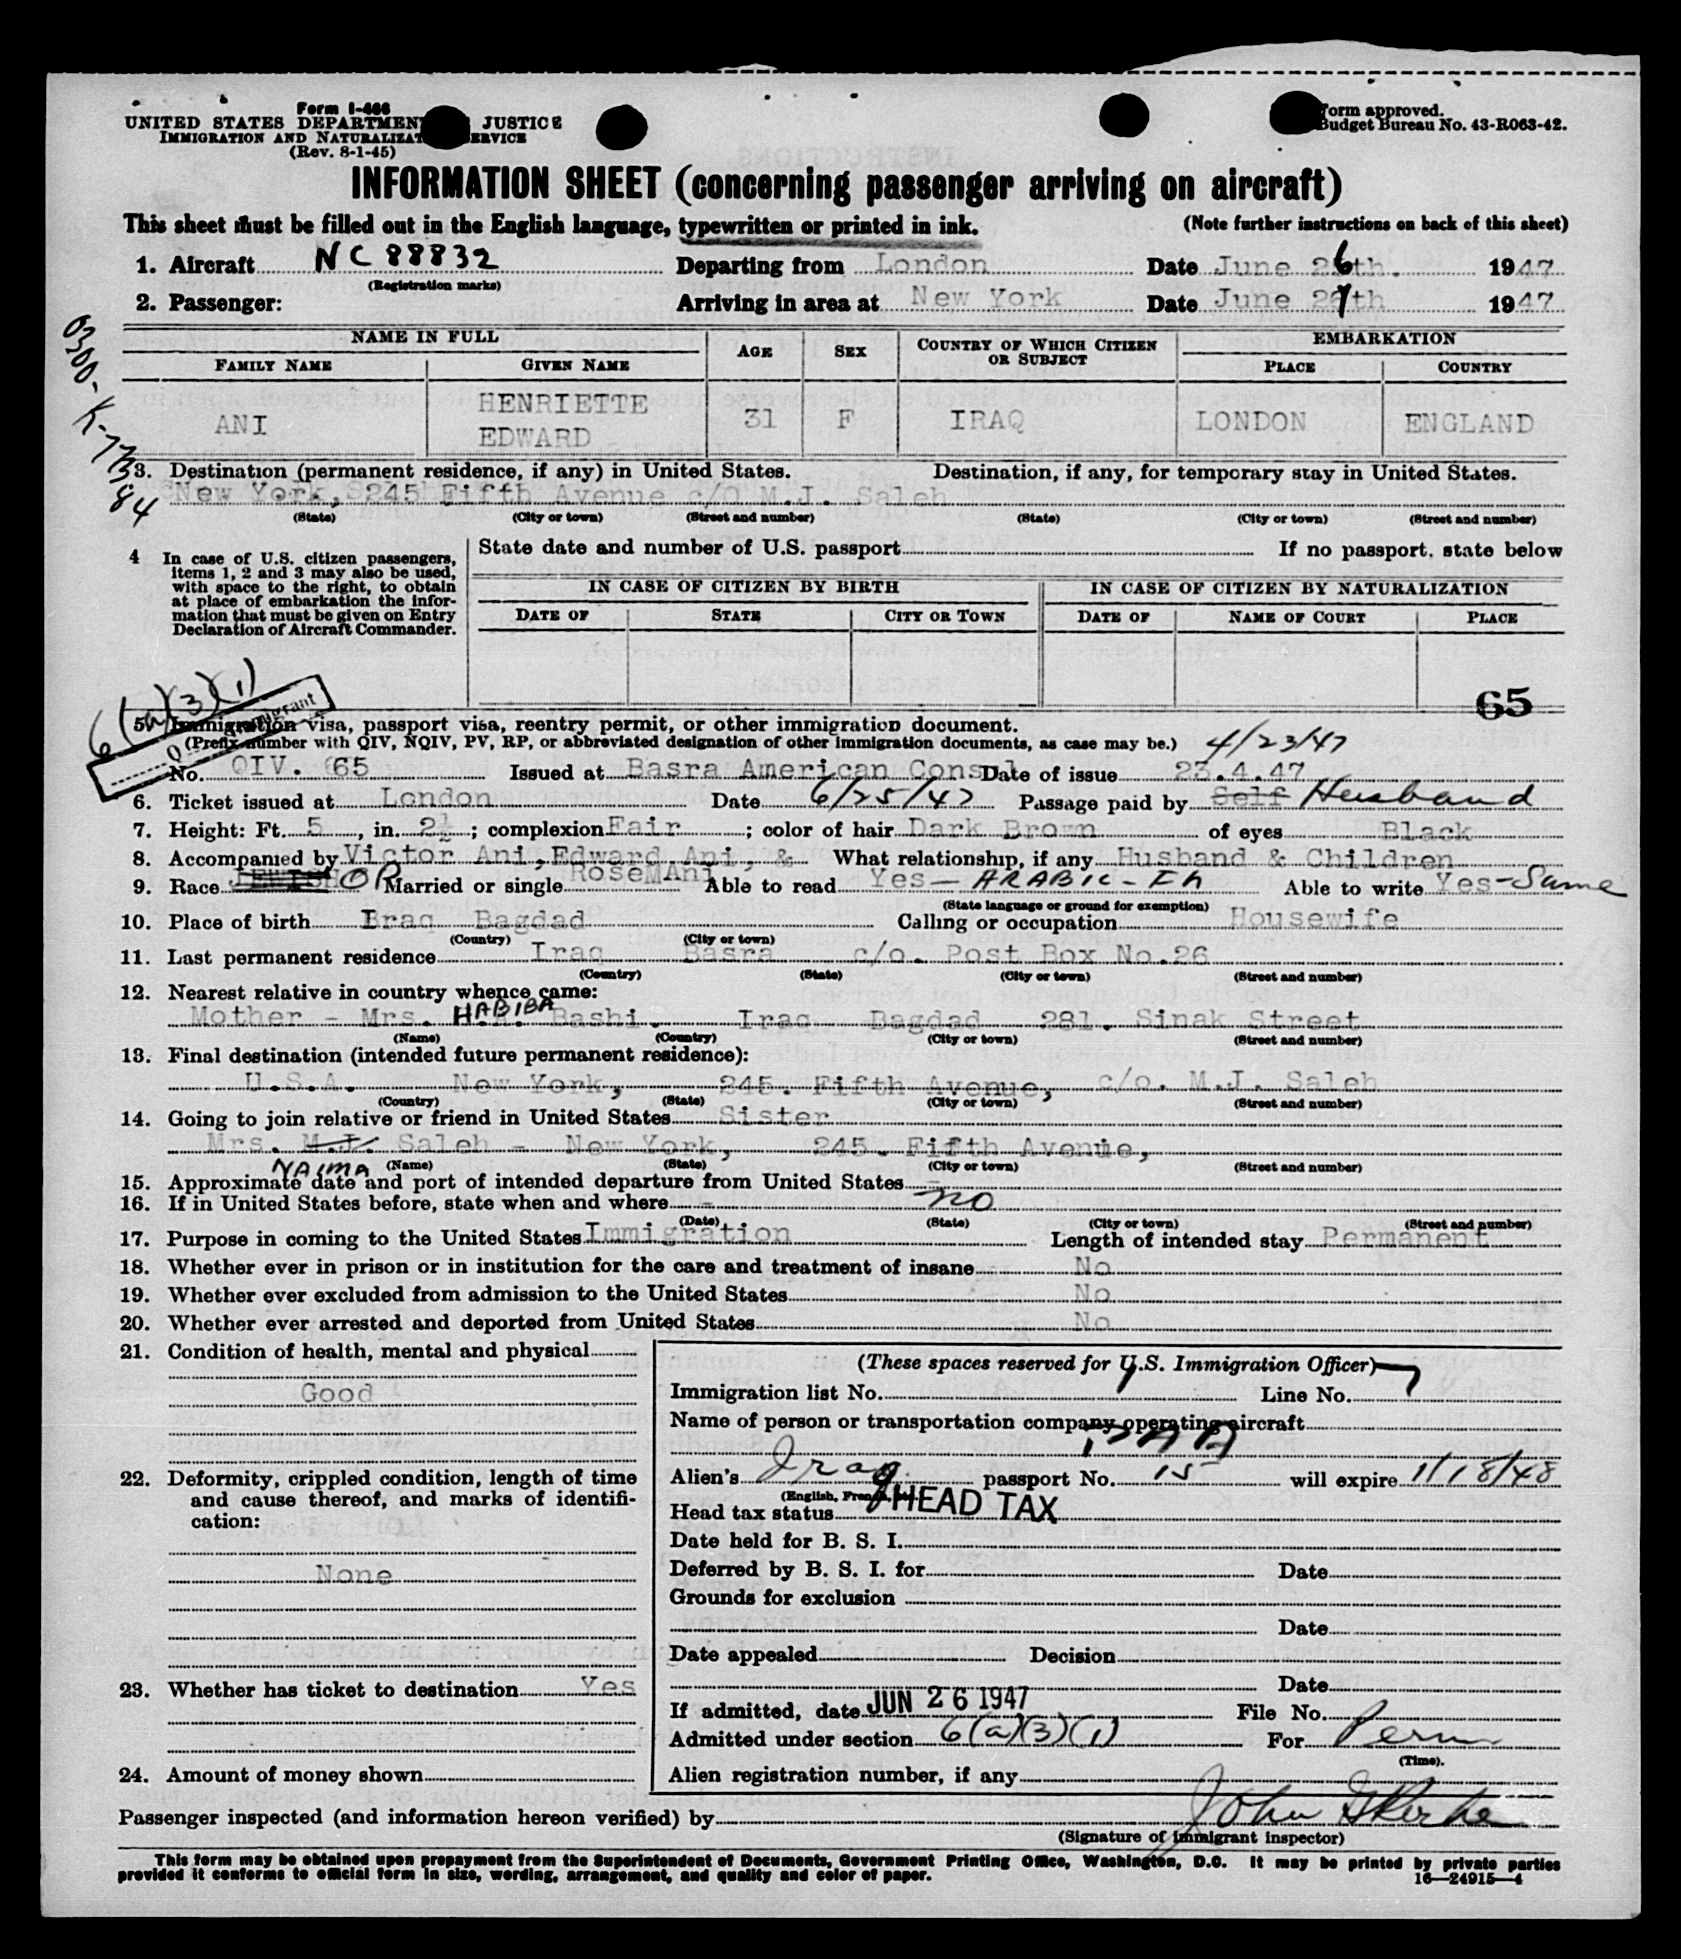 Form I-466
UNITED STATES DEPARTMENT JUSTICE
IMMIGRATION AND NATURALIZAT SERVICE
(Rev. 8-1-45)
Form approved.
Budget Bureau No. 43-R063-42.
INFORMATION SHEET (concerning passenger arriving on aircraft)
This sheet must be filled out in the English language, typewritten or printed in ink. (Note further instructions on back of this sheet)
1. Aircraft NC 88832 Departing from London Date June 26th. 1947
(Registration marks)
2. Passenger: Arriving in area at New York Date June 27th 1947
0300-K-77384
NAME IN FULL AGE SEX COUNTRY OF WHICH CITIZEN OR SUBJECT EMBARKATION
FAMILY NAME GIVEN NAME PLACE COUNTRY
ANI HENRIETTE EDWARD 31 F IRAQ LONDON ENGLAND
3. Destination (permanent residence, if any) in United States. Destination, if any, for temporary stay in United States.
New York, 245 Fifth Avenue c/o M.J. Saleh
(State) (City or town) (Street and number) (State) (City or town) (Street and number)
4 In case of U.S. citizen passengers, items 1, 2 and 3 may also be used, with space to the right, to obtain at place of embarkation the information that must be given on Entry Declaration of Aircraft Commander.
State date and number of U.S. passport If no passport, state below
IN CASE OF CITIZEN BY BIRTH IN CASE OF CITIZEN BY NATURALIZATION
DATE OF STATE CITY OR TOWN DATE OF NAME OF COURT PLACE
65
6(a)(3)(1)
5. Immigration visa, passport visa, reentry permit, or other immigration document.
(Prefix number with QIV, NQIV, PV, RP, or abbreviated designation of other immigration documents, as case may be.) 4/23/47
No. QIV. 65 Issued at Basra American Consul Date of issue 23.4.47
6. Ticket issued at London Date 6/25/47 Passage paid by Self Husband
7. Height: Ft. 5, in. 2½; complexion Fair; color of hair Dark Brown of eyes Black
8. Accompanied by Victor Ani, Edward Ani, & What relationship, if any Husband & Children
RoseMAni
9. Race JEWISH OP Married or single Able to read Yes - ARABIC - Able to write Yes - Same
(State language or ground for exemption)
10. Place of birth Iraq Bagdad Calling or occupation Housewife
(Country) (City or town)
11. Last permanent residence Iraq Basra c/o. Post Box No.26
(Country) (State) (City or town) (Street and number)
12. Nearest relative in country whence came:
Mother - Mrs. HABIBA Bashi. Iraq Bagdad 281. Sinak Street
(Name) (Country) (City or town) (Street and number)
13. Final destination (intended future permanent residence):
U.S.A. New York, 245. Fifth Avenue, c/o. M.J. Saleh
(Country) (State) (City or town) (Street and number)
14. Going to join relative or friend in United States Sister
Mrs. M.J. Saleh - New York, 245. Fifth Avenue,
NAIMA (Name) (State) (City or town) (Street and number)
15. Approximate date and port of intended departure from United States -
16. If in United States before, state when and where - no
(Date) (State) (City or town) (Street and number)
17. Purpose in coming to the United States Immigration Length of intended stay Permanent
18. Whether ever in prison or in institution for the care and treatment of insane No
19. Whether ever excluded from admission to the United States No
20. Whether ever arrested and deported from United States No
21. Condition of health, mental and physical
Good
22. Deformity, crippled condition, length of time and cause thereof, and marks of identification:
None
23. Whether has ticket to destination Yes
24. Amount of money shown
(These spaces reserved for U.S. Immigration Officer)
Immigration list No. Line No. 7
Name of person or transportation company operating aircraft
PAA
Alien's Iraq passport No. 15 will expire 1/18/48
Head tax status HEAD TAX
Date held for B. S. I.
Deferred by B. S. I. for Date
Grounds for exclusion
Date
Date appealed Decision
Date
If admitted, date JUN 26 1947 File No.
Admitted under section 6(a)(3)(1) For Perm
(Time).
Alien registration number, if any
Passenger inspected (and information hereon verified) by
(Signature of immigrant inspector)
This form may be obtained upon prepayment from the Superintendent of Documents, Government Printing Office, Washington, D.C. It may be printed by private parties
provided it conforms to official form in size, wording, arrangement, and quality and color of paper.
16—24915-4